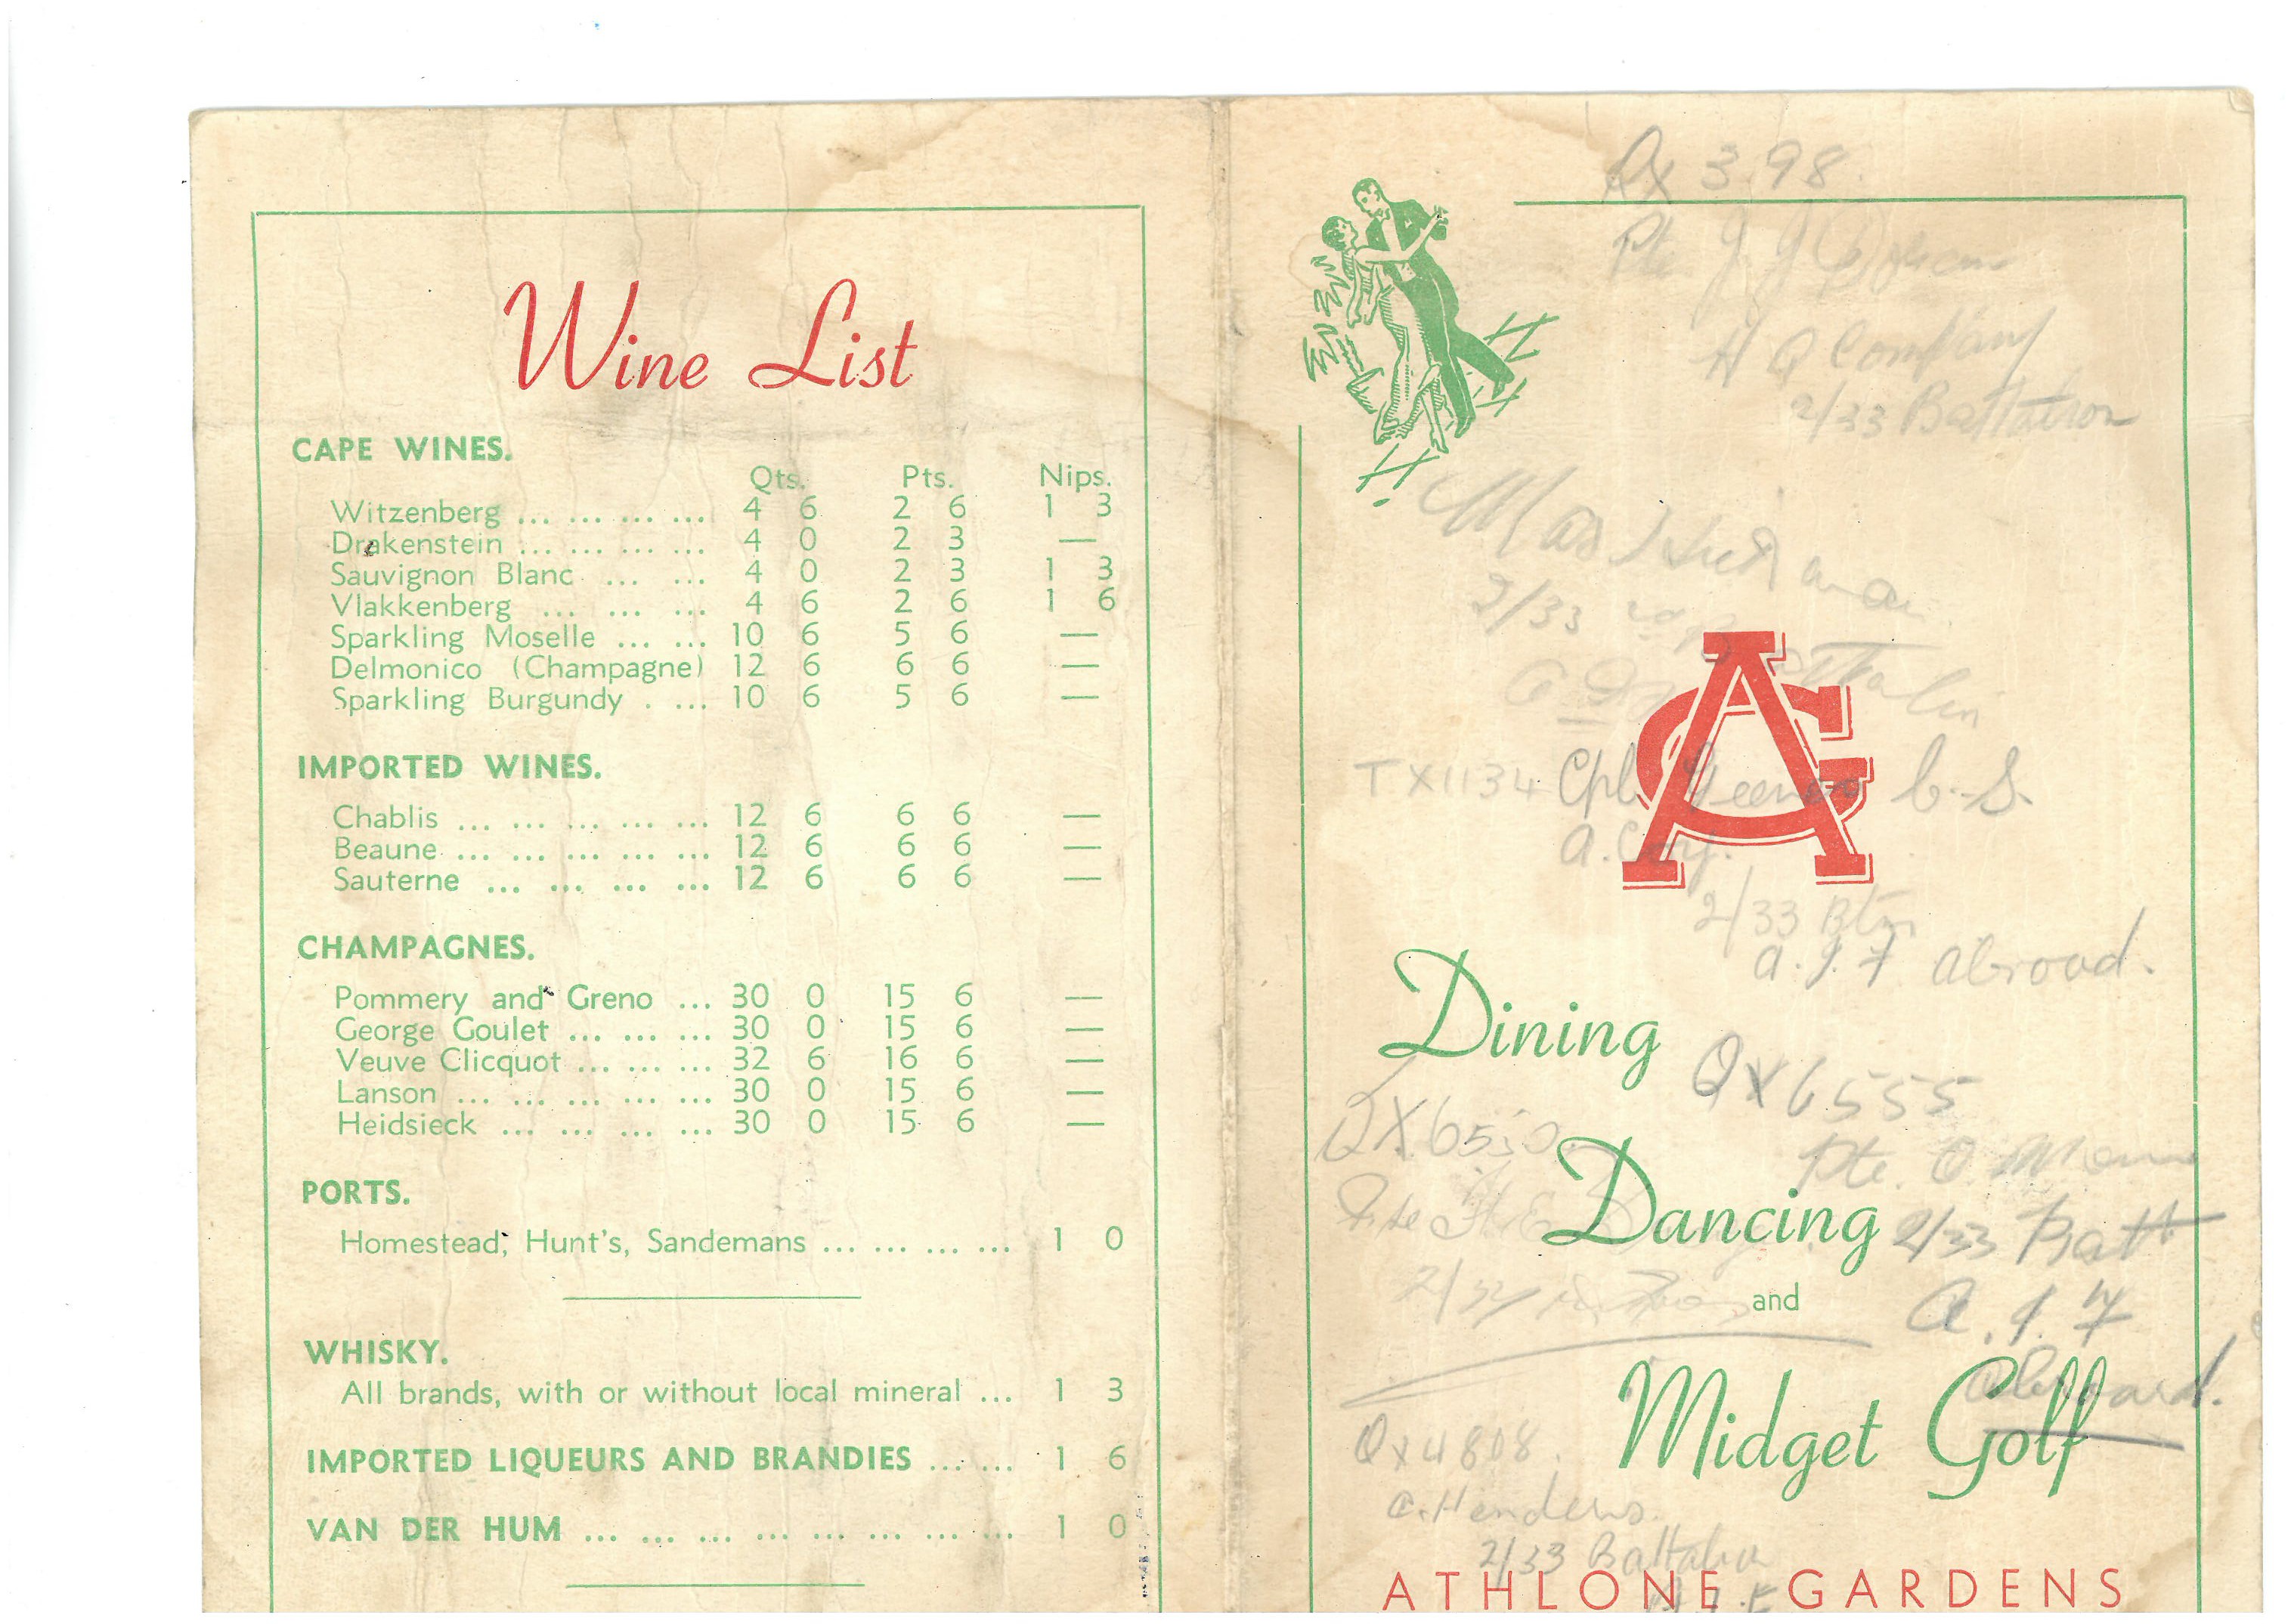 Wine List
CAPE WINES.
Qts. Pts. Nips.
Witzenberg ... ... ... ... 4 6 2 6 1 3
Drakenstein ... ... ... ... 4 0 2 3 —
Sauvignon Blanc ... ... 4 0 2 3 1 3
Vlakkenberg ... ... ... 4 6 2 6 1 6
Sparkling Moselle ... ... 10 6 5 6 —
Delmonico (Champagne) 12 6 6 6 —
Sparkling Burgundy . ... 10 6 5 6 —
IMPORTED WINES.
Chablis ... ... ... ... ... 12 6 6 6 —
Beaune ... ... ... ... ... 12 6 6 6 —
Sauterne ... ... ... ... 12 6 6 6 —
CHAMPAGNES.
Pommery and Greno ... 30 0 15 6 —
George Goulet ... ... ... 30 0 15 6 —
Veuve Clicquot ... ... ... 32 6 16 6 —
Lanson ... ... ... ... ... 30 0 15 6 —
Heidsieck ... ... ... ... 30 0 15 6 —
PORTS.
Homestead, Hunt's, Sandemans ... ... ... ... 1 0
WHISKY.
All brands, with or without local mineral ... 1 3
IMPORTED LIQUEURS AND BRANDIES ... ... 1 6
VAN DER HUM ... ... ... ... ... ... ... ... 1 0
3 98.
Pte J. J.
H Q Company
2/33 Battalion
2/33
AG
TX1134 Cpl. C. S.
A. Coy.
2/33 Btn
A.I.F abroad.
Dining
QX6555
QX6550.
Pte. O.
Pte H. E.
Dancing
2/33 Batt
2/33
and
A.I.F
Abroad.
Midget Golf
QX4808.
2/33 Battalion
A.I.F
ATHLONE GARDENS